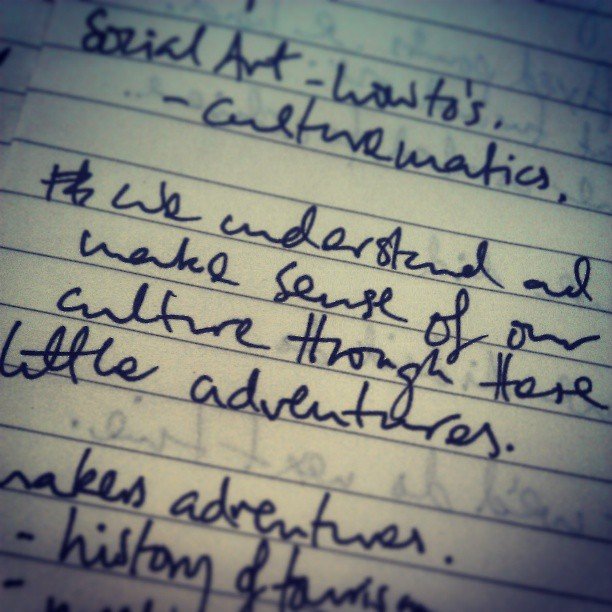 Social Art - how to's.
- culturematics.
we understand and
make sense of our
culture through these
little adventures.
makers adventures.
- history of tourism
-